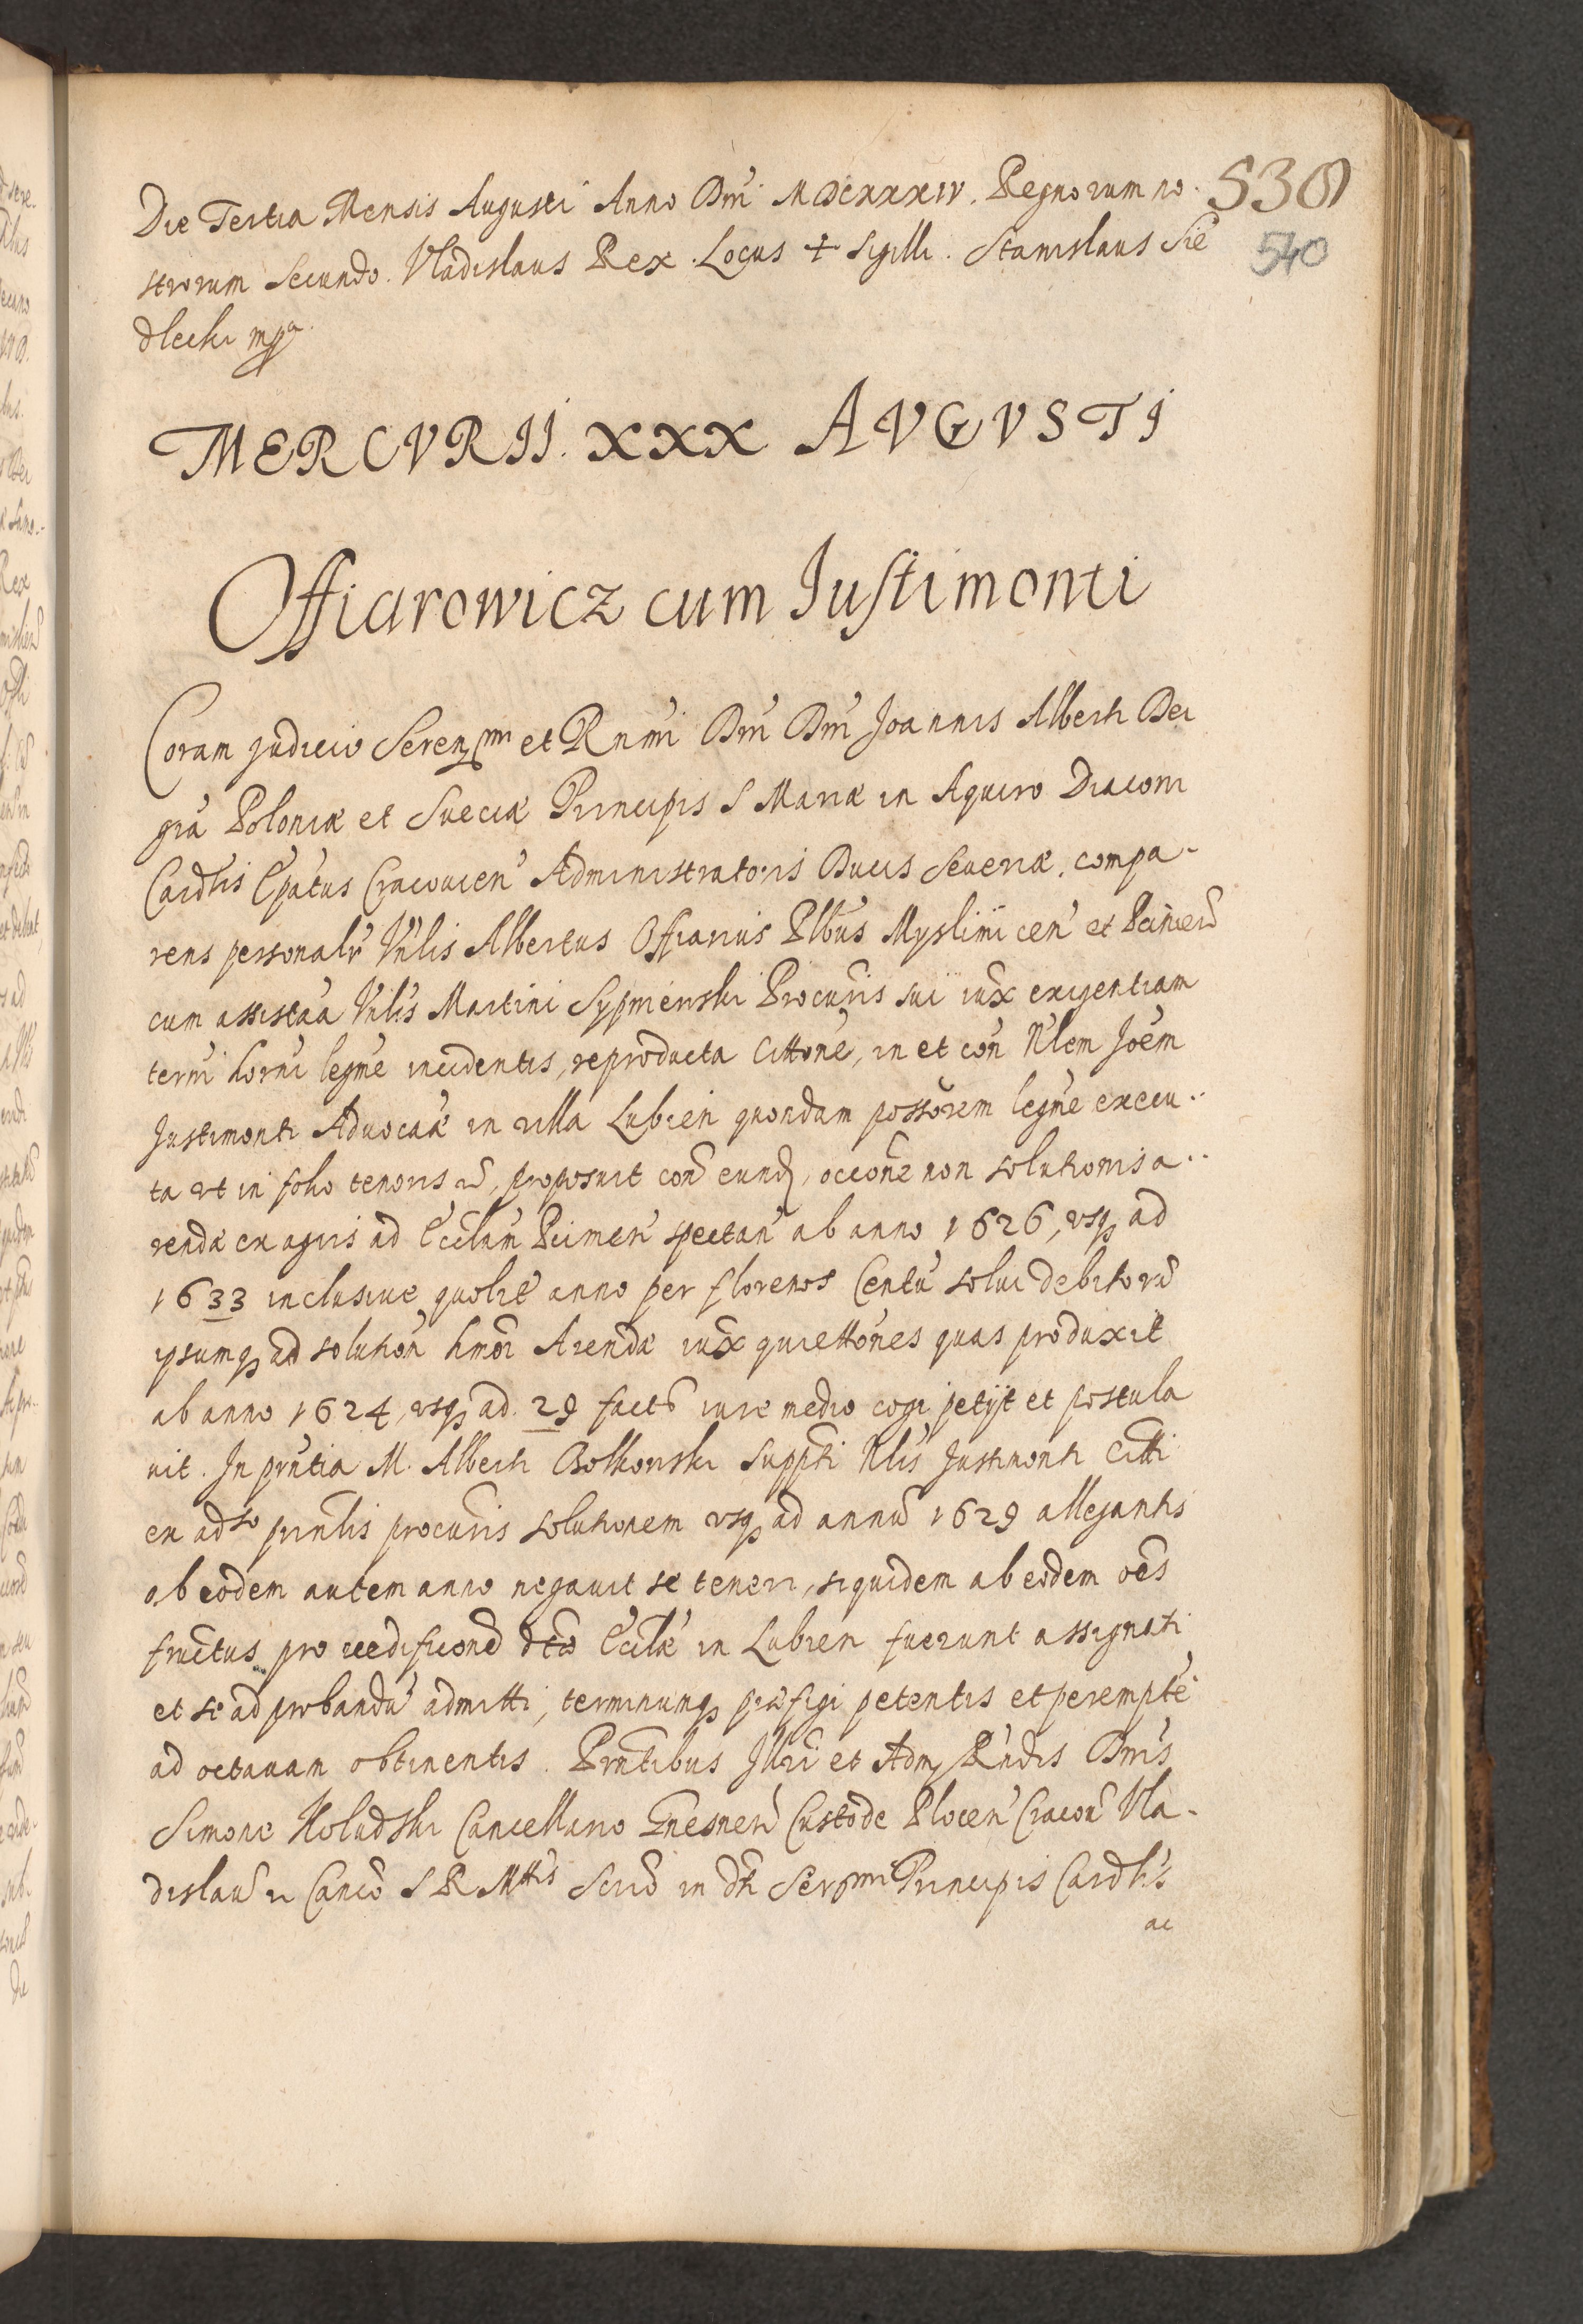 Die Tertia Mensis Augusti Anno Dni MDCXXXIV. Regnorum no- 538
strorum Secundo. Vladislaus Rex. Locus + Sigilli. Stanislaus Sie 540
dlecki mpa
MERCVRII. XXX AVGVSTI
Offiarowicz cum Justimonti
Coram judicio Serenmi et Rnmi Dni Dni Joannis Alberti Dei
gra Poloniæ et Sueciæ Principis S Mariæ in Aquiro Diaconi
Cardlis Epatus Cracouien Administratoris Ducis Seueriæ, compa-
rens personalr Vnlis Albertus Offiarius Plbus Myslimicen et
cum assistaa Vnlis Martini Sypnienski Procuris sui iux exigentiam
termi horni legme incidentis, reproducta Cittone, in et con Nlem Joem
Justimonti Aduocaæ in villa Lubien quondam possorem legme execu-
ta vt in folio tenoris, proposuit con eund, occone non solutionis a-
rendæ ex agris ad Ecclam Pcimen spectan ab anno 1626, vsq ad
1633 inclusiue quolit anno per florenos Centu solui debitoru
ipsumq ad solution hmoi Arendæ iux quiettones quas produxit
ab anno 1624, vsq ad 29 facto iure medio cogi petijt et postula
uit. In pntia M. Alberti Bolkowski Suppti Nlis Justimonti Citti
ex adso prinlis procuris solutionem vsq ad annu 1629 allegantis
ab eodem autem anno negauit se teneri, siquidem ab eodem oes
fructus pro reedificone dto Ecclæ in Lubien fuerunt assignati
et se ad probandu admitti, terminumq præfigi petentis et perempte
ad octauam obtinentis. Prntibus Illri et Adm Rndis Dnis
Simone Kołudzki Cancellario Gnesnen Custode Plocen Cracou Vla-
dislau n Canco S R Mttis Scrio in dti Sermi Principis Cardlis
ac